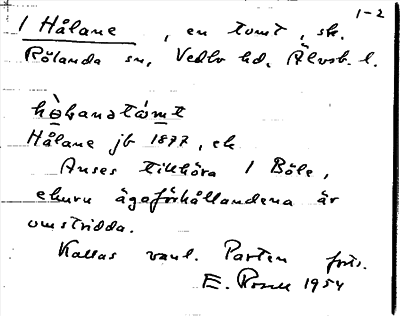 1-2
1 Hålane, en tomt, sk.
Rölanda sn, Vedbo hd, Älvsb. l.
hò̱ḷanstó̱mt
Hålane jb 1877, ek
Anses tillhöra 1 Böle,
ehuru ägoförhållandena är
omstridda.
Kallas vanl. Parten forts.
E. Rosell 1954